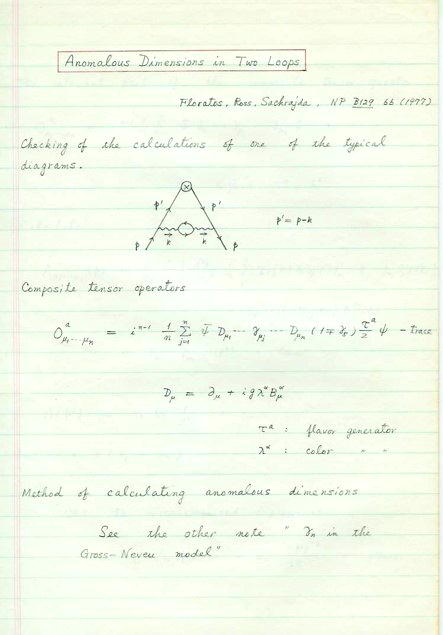 Anomalous Dimensions in Two Loops
Floratos, Ross, Sachrajda, NP B129 66 (1977)
Checking of the calculations of one of the typical
diagrams.
⊗
p' p' p' = p-k
p k k p
Composite tensor operators
O^a_{μ₁...μₙ} = i^{n-1} 1/n Σ_{j=1}^{n} ψ̄ D_{μ₁} ... γ_{μj} ... D_{μₙ} (1∓γ₅) τ^a/2 ψ - trace
D_μ = ∂_μ + i g λ^α B^α_μ
τ^a : flavor generator
λ^α : color " "
Method of calculating anomalous dimensions
See the other note " γₙ in the
Gross-Neveu model"